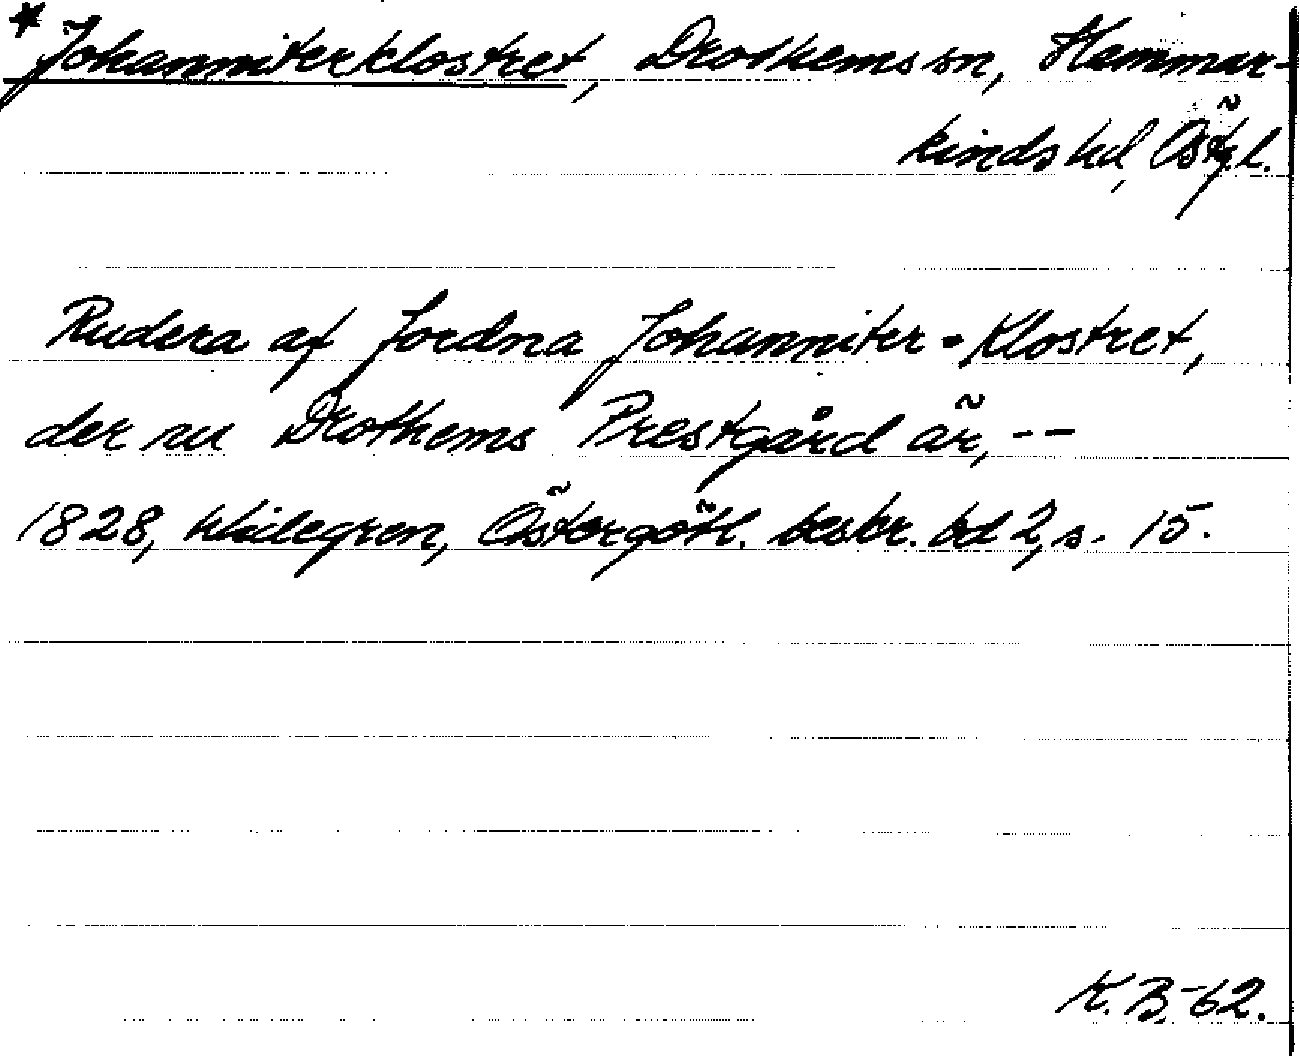 * Johanniterklostret, Drothems sn, Hammar-
kinds hd, Östgl.
Rudera af fordna Johanniter-Klostret,
der nu Drothems Prestgård är, --
1828, Widegren, Östergötl. beskr. bd 2, s. 15.
K.B.-62.